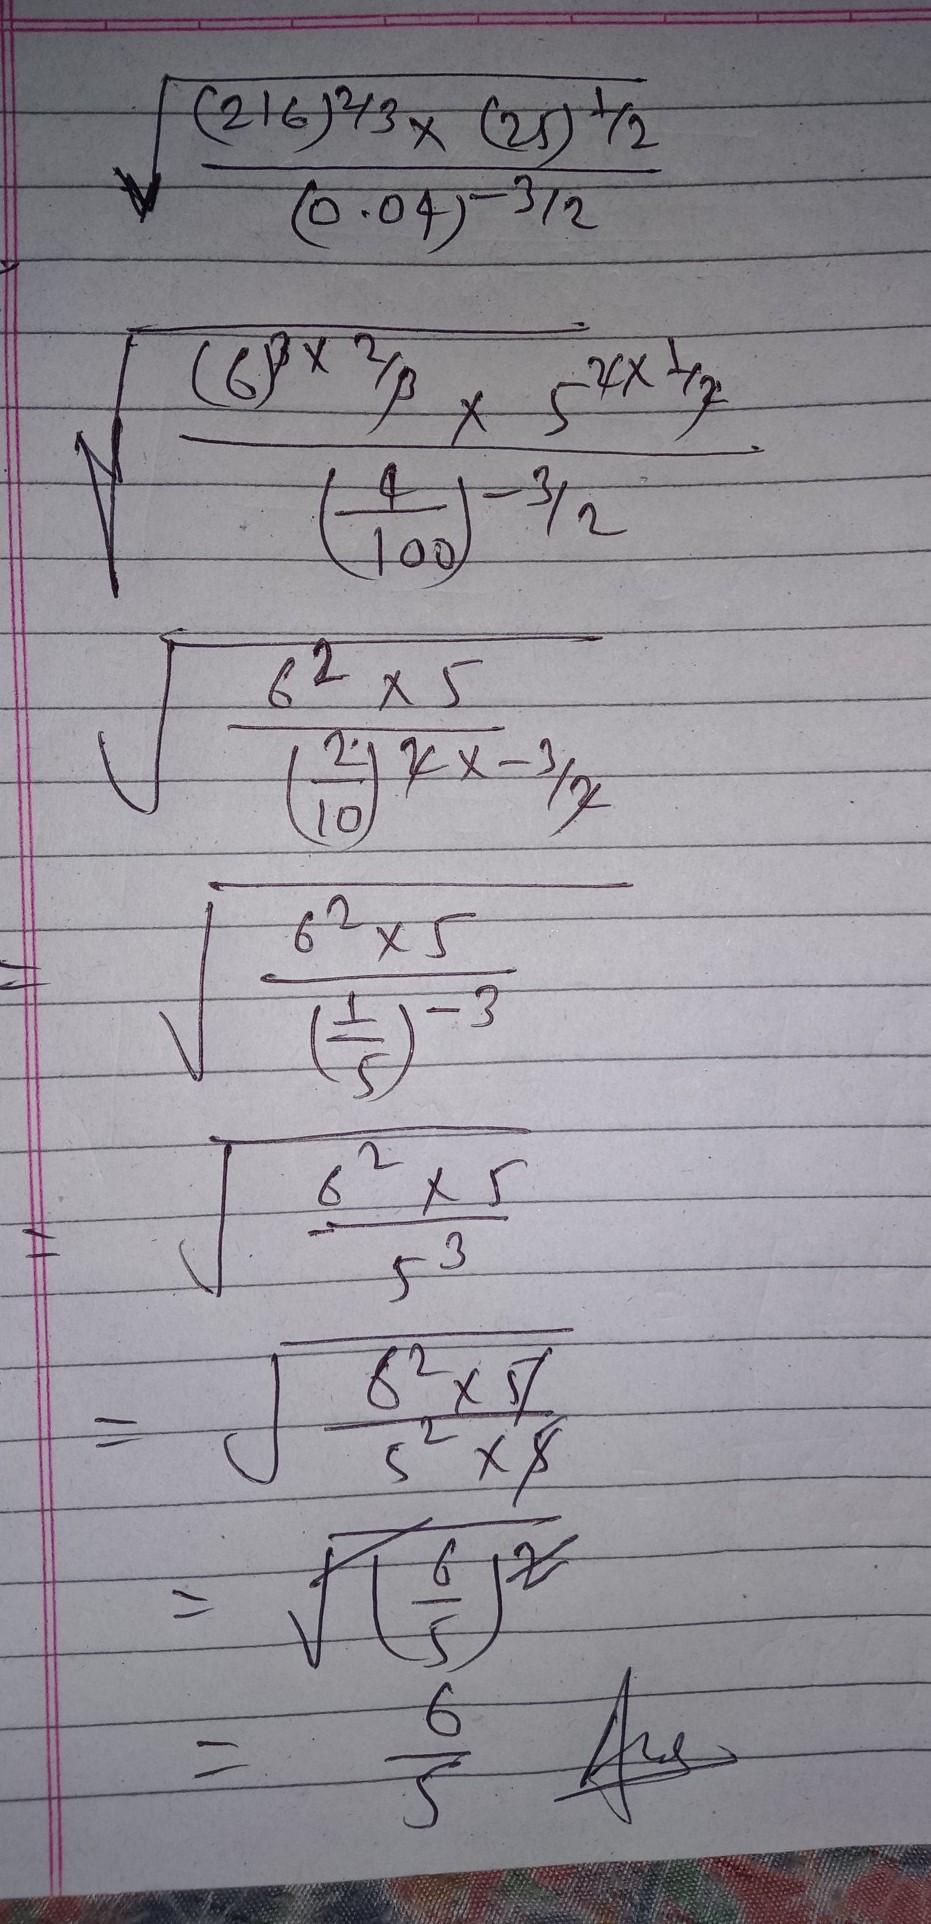 √((216)^2/3 × (25)^1/2 / (0.04)^-3/2)
√((6)^3×2/3 × 5^2×1/2 / (4/100)^-3/2)
√(6^2 × 5 / (2/10)^2×-3/2)
= √(6^2 × 5 / (1/5)^-3)
= √(6^2 × 5 / 5^3)
= √(6^2 × 5 / 5^2 × 5)
= √(6/5)^2
= 6/5 Ans